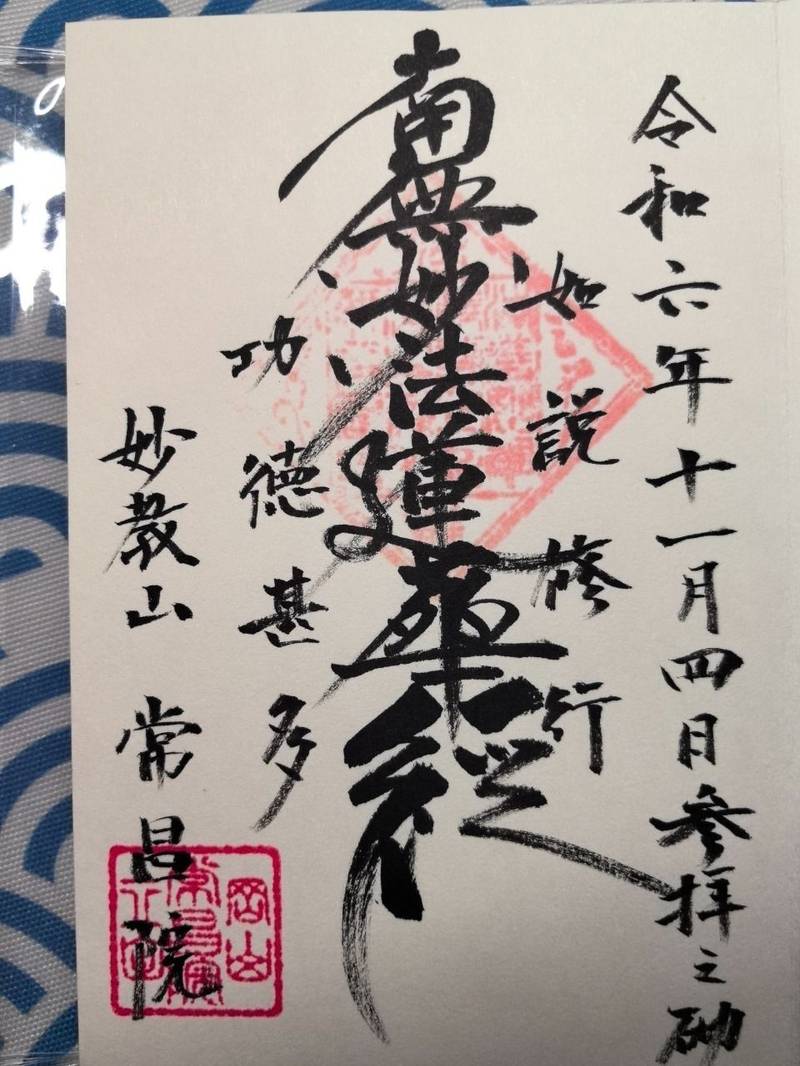 令和六年十一月四日参拝之砌
如説修行
南無妙法蓮華経
功徳甚多
妙教山 常昌院
岡山